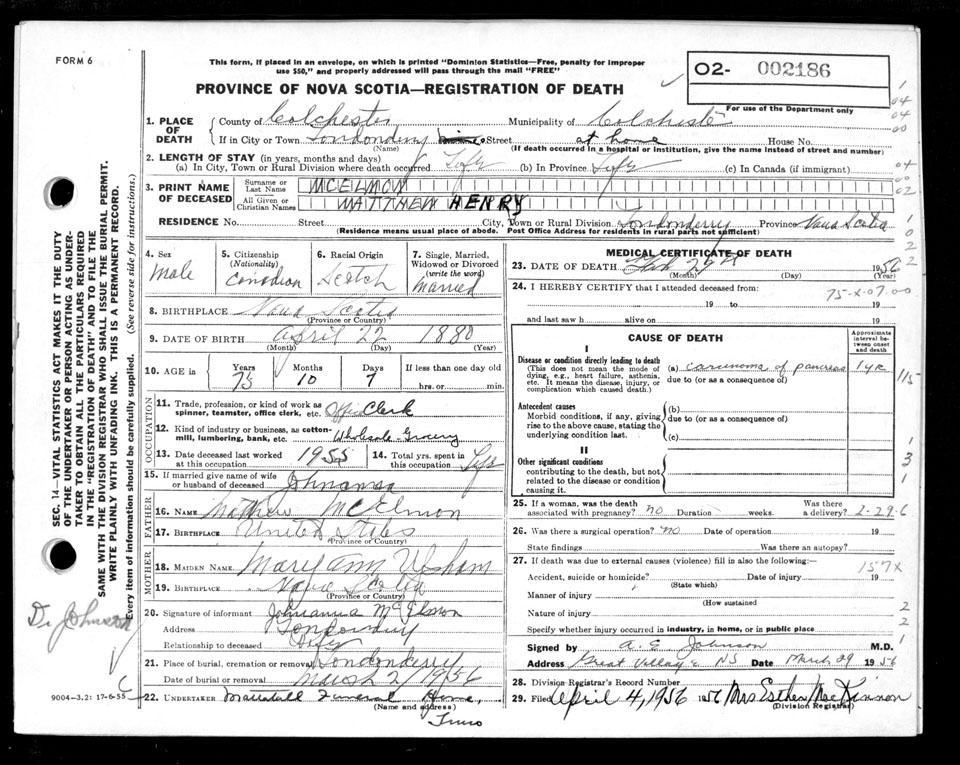 FORM 6
This form, if placed in an envelope, on which is printed "Dominion Statistics—Free, penalty for improper
use $50," and properly addressed will pass through the mail "FREE"
02- 002186
For use of the Department only
PROVINCE OF NOVA SCOTIA—REGISTRATION OF DEATH
1. PLACE OF DEATH
County of Colchester Municipality of Colchester
If in City or Town Londonderry Street at home House No.
(Name) (If death occurred in a hospital or institution, give the name instead of street and number)
2. LENGTH OF STAY (in years, months and days)
(a) In City, Town or Rural Division where death occurred Life (b) In Province Life (c) In Canada (if immigrant)
3. PRINT NAME OF DECEASED
Surname or Last Name MCELMON
All Given or Christian Names MATTHEW HENRY
RESIDENCE No. Street City, Town or Rural Division Londonderry Province Nova Scotia
(Residence means usual place of abode. Post Office Address for residents in rural parts not sufficient)
4. Sex Male
5. Citizenship (Nationality) Canadian
6. Racial Origin Scotch
7. Single, Married, Widowed or Divorced (write the word) Married
8. BIRTHPLACE Nova Scotia
(Province or Country)
9. DATE OF BIRTH April 22 1880
(Month) (Day) (Year)
10. AGE in Years 75 Months 10 Days 7 If less than one day old
hrs. or min.
OCCUPATION
11. Trade, profession, or kind of work as
spinner, teamster, office clerk, etc. Office Clerk
12. Kind of industry or business, as cotton-
mill, lumbering, bank, etc. Wholesale Grocery
13. Date deceased last worked
at this occupation 1955
14. Total yrs. spent in
this occupation Life
15. If married give name of wife
or husband of deceased Johnanna
FATHER
16. NAME Mathew McElmon
17. BIRTHPLACE United States
(Province or Country)
MOTHER
18. MAIDEN NAME Mary Ann
19. BIRTHPLACE Nova Scotia
(Province or Country)
20. Signature of informant Johnanna McElmon
Address Londonderry
Relationship to deceased Wife
21. Place of burial, cremation or removal Londonderry
Date of burial or removal March 2/1956
22. UNDERTAKER Funeral Home,
(Name and address)
Truro
MEDICAL CERTIFICATE OF DEATH
23. DATE OF DEATH Feb 29th 1956
(Month) (Day) (Year)
24. I HEREBY CERTIFY that I attended deceased from:
75-X-07.00
19 to 19
and last saw h alive on 19
CAUSE OF DEATH
Approximate interval between onset and death
I
Disease or condition directly leading to death
(This does not mean the mode of
dying, e.g., heart failure, asthenia,
etc. It means the disease, injury, or
complication which caused death.)
(a) carcinoma of pancreas 1 yr
due to (or as a consequence of)
Antecedent causes
Morbid conditions, if any, giving
rise to the above cause, stating the
underlying condition last.
(b)
due to (or as a consequence of)
(c)
II
Other significant conditions
contributing to the death, but not
related to the disease or condition
causing it.
25. If a woman, was the death
associated with pregnancy? no Duration weeks. Was there
a delivery? 2-29-6
26. Was there a surgical operation? no Date of operation 19
State findings Was there an autopsy?
27. If death was due to external causes (violence) fill in also the following:—
157X
Accident, suicide or homicide? Date of injury 19
(State which)
Manner of injury
(How sustained
Nature of injury
Specify whether injury occurred in industry, in home, or in public place
Signed by A. E. Johnson M.D.
Address Great Village NS Date March 29 1956
28. Division Registrar's Record Number
29. Filed April 4, 1956 Mrs Esther MacKinnon
(Division Registrar)
SEC. 14—VITAL STATISTICS ACT MAKES IT THE DUTY
OF THE UNDERTAKER OR PERSON ACTING AS UNDER-
TAKER TO OBTAIN ALL THE PARTICULARS REQUIRED
IN THE "REGISTRATION OF DEATH" AND TO FILE THE
SAME WITH THE DIVISION REGISTRAR WHO SHALL ISSUE THE BURIAL PERMIT.
WRITE PLAINLY WITH UNFADING INK. THIS IS A PERMANENT RECORD.
Every item of information should be carefully supplied. (See reverse side for instructions.)
Dr Johnston
9004—3.2: 17-6-55